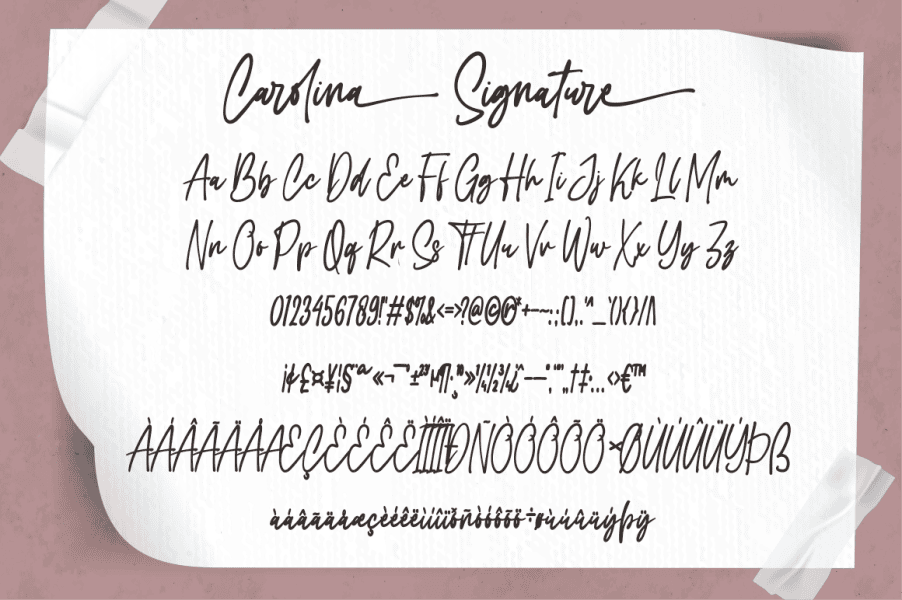 Carolina Signature
Aa Bb Cc Dd Ee Ff Gg Hh Ii Jj Kk Ll Mm
Nn Oo Pp Qq Rr Ss Tt Uu Vv Ww Xx Yy Zz
0123456789!"#$%&<=>?@©®*+-–~:;[],.'^_`(){}/|\
¡¢£¤¥¦§¨ª«¬¯°±²³´µ¶·¸¹º»¼½¾¿ˆ–—‘’‚“”„†‡•…‹›€™
ÀÁÂÃÄÅÆÇÈÉÊËÌÍÎÏÐÑÒÓÔÕÖ×ØÙÚÛÜÝÞß
àáâãäåæçèéêëìíîïðñòóôõö÷øùúûüýþÿ